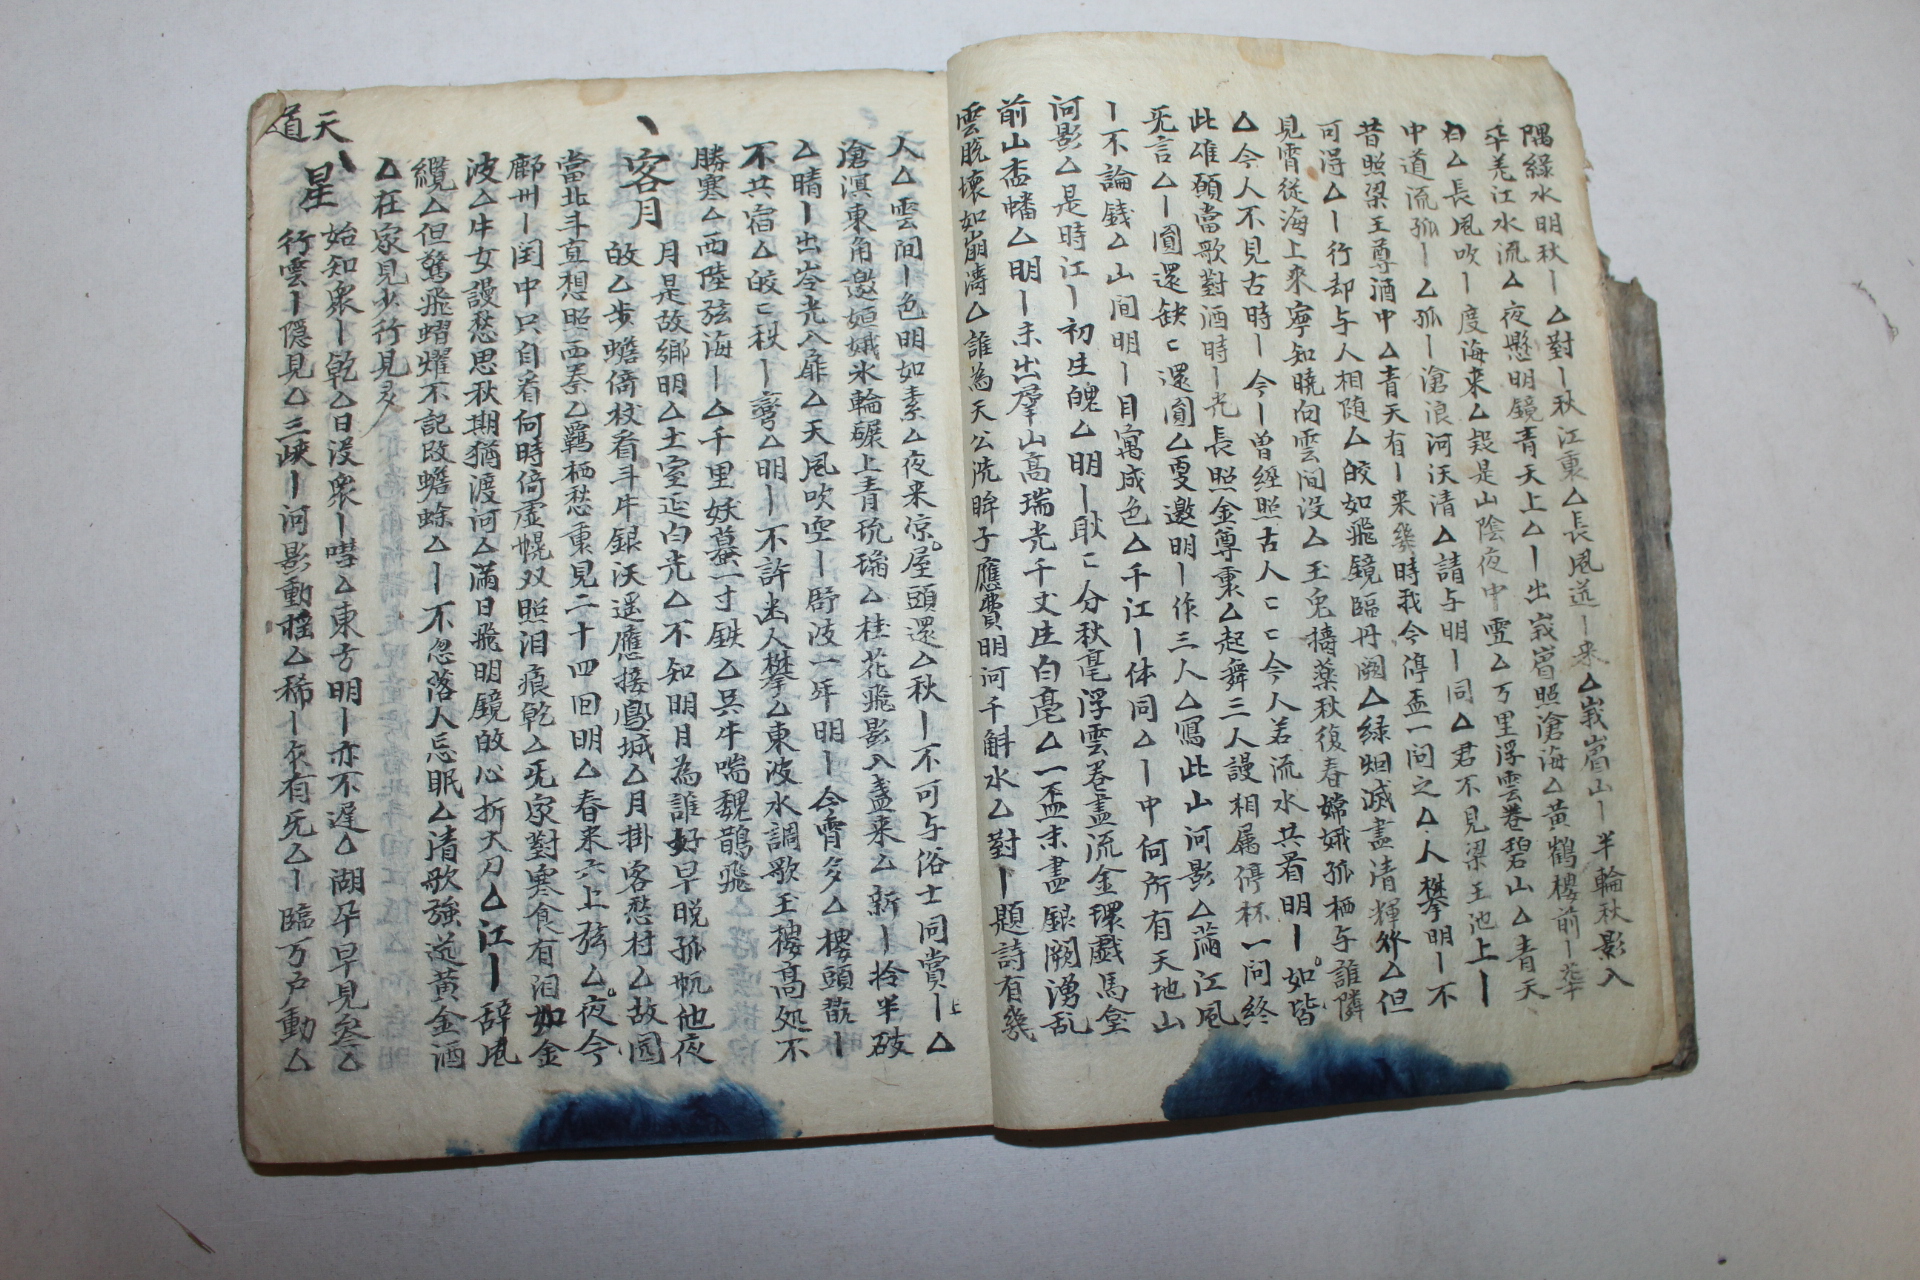 隅綠水明秋丨△對丨秋江東△長風送丨来△峩嵋山丨半輪秋影入
平羌江水流△夜懸明鏡青天上△丨出峩嵋照滄海△黃鶴樓前丨華
白△長風吹丨度海来△疑是山陰夜中雪△万里浮雲卷碧山△青天
中道流孤丨△孤丨滄浪河沃清△請与明丨同△君不見梁王池上丨
昔照梁王尊酒中△青天有丨来幾時我今停盃一问之△人攀明丨不
可淂△丨行却与人相随△皎如飛鏡臨丹闕△綠烟滅盡清輝发△但
見宵從海上来寧知曉向雲间没△玉兎擣藥秋復春嫦娥孤栖与誰隣
△今人不見古時丨今丨曽經照古人ㄷㄷ今人若流水共看明丨如皆
此雄願當歌對酒時丨光長照金尊裏△起舞三人謾相属停杯一问終
旡言△丨圓還缺ㄷ還圓△更邀明丨作三人△寫此山河影△滿江風
丨不論錢△山间明丨目寓成色△千江丨体同△丨中何所有天地山
河影△是時江丨初生魄△明丨耿ㄷ分秋毫浮雲卷盡流金環戲馬堂
前山盃蟠△明丨未出羣山高瑞光千丈生白毫△一盃未盡銀闕湧乱
雲脱壊如崩濤△誰為天公洗眸子應費明河千斛水△對丨題詩有幾
人△雲间丨色明如素△夜来凉屋頭還△秋丨不可与俗士同賞丨△
滄溟東角邀姮娥氷輪碾上青琉璃△桂花飛影入盞来△新丨拾半破
△晴丨出岺光入扉△天風吹空丨厨波一年明丨今宵多△樓頭散丨
不共宿△皎ㄷ秋丨彎△明丨不許出人攀△東波水調歌玉樓高処不
勝寒△西陸弦海丨△千里妖蟇一寸鉄△吳牛喘魏鵲飛
客月
月是故鄉明△土室延白光△不知明月為誰好早晩孤帆他夜
的△步蟾倚杖看斗牛銀沃遥應接鳳城△月掛客愁村△故园
當北斗直想照西秦△羈栖愁重見二十四回明△春来六上弦△夜今
鄜州丨闺中只自看何時倚虛幌双照泪痕乾△旡家對寒食有泪如金
波△牛女謾愁思秋期猶渡河△滿目飛明鏡的心折大刀△江丨辞風
纜△但驚飛熠燿不記改蟾蜍△丨不忽落人忘眠△清歌強送黃金酒
△在家見少行見多
天道
星
始知衆丨乾△日没衆丨嘒△東方明丨亦不遅△湖平早見叅△
行雲丨隱見△三峽丨河影動揺△稀丨尔有无△丨臨万戶動△